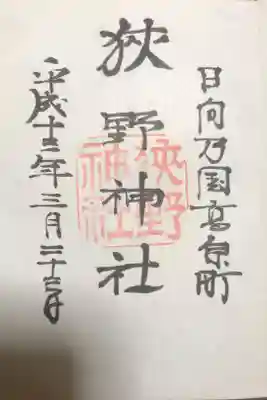 日向乃国高原町
狹野神社
平成十三年三月二十三日
狹野
神社